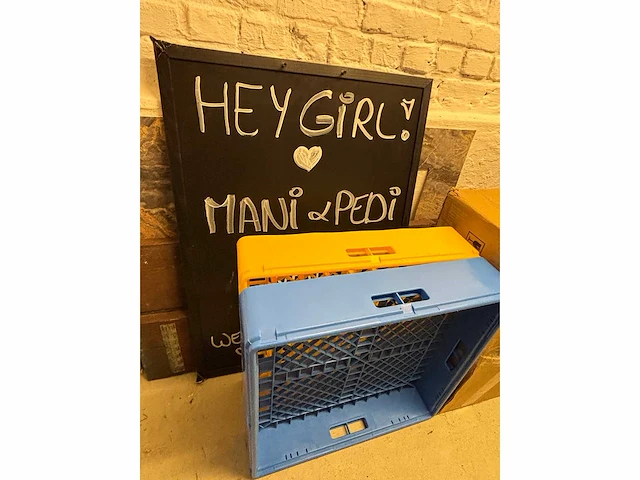 HEY GIRL!
MANI & PEDI
WE